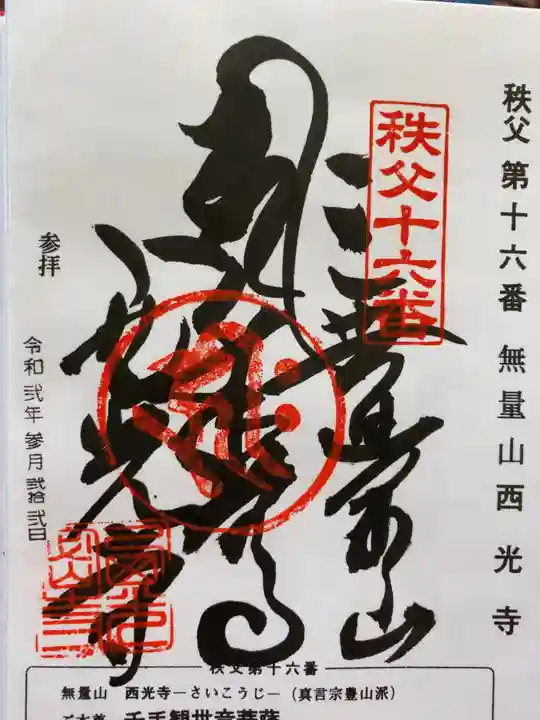 秩父第十六番 無量山西光寺
秩父十六番
無量山
西光寺
参拝
令和弐年参月弐拾弐日
秩父第十六番
無量山 西光寺―さいこうじ―（真言宗豊山派）
ご本尊 千手観世音菩薩